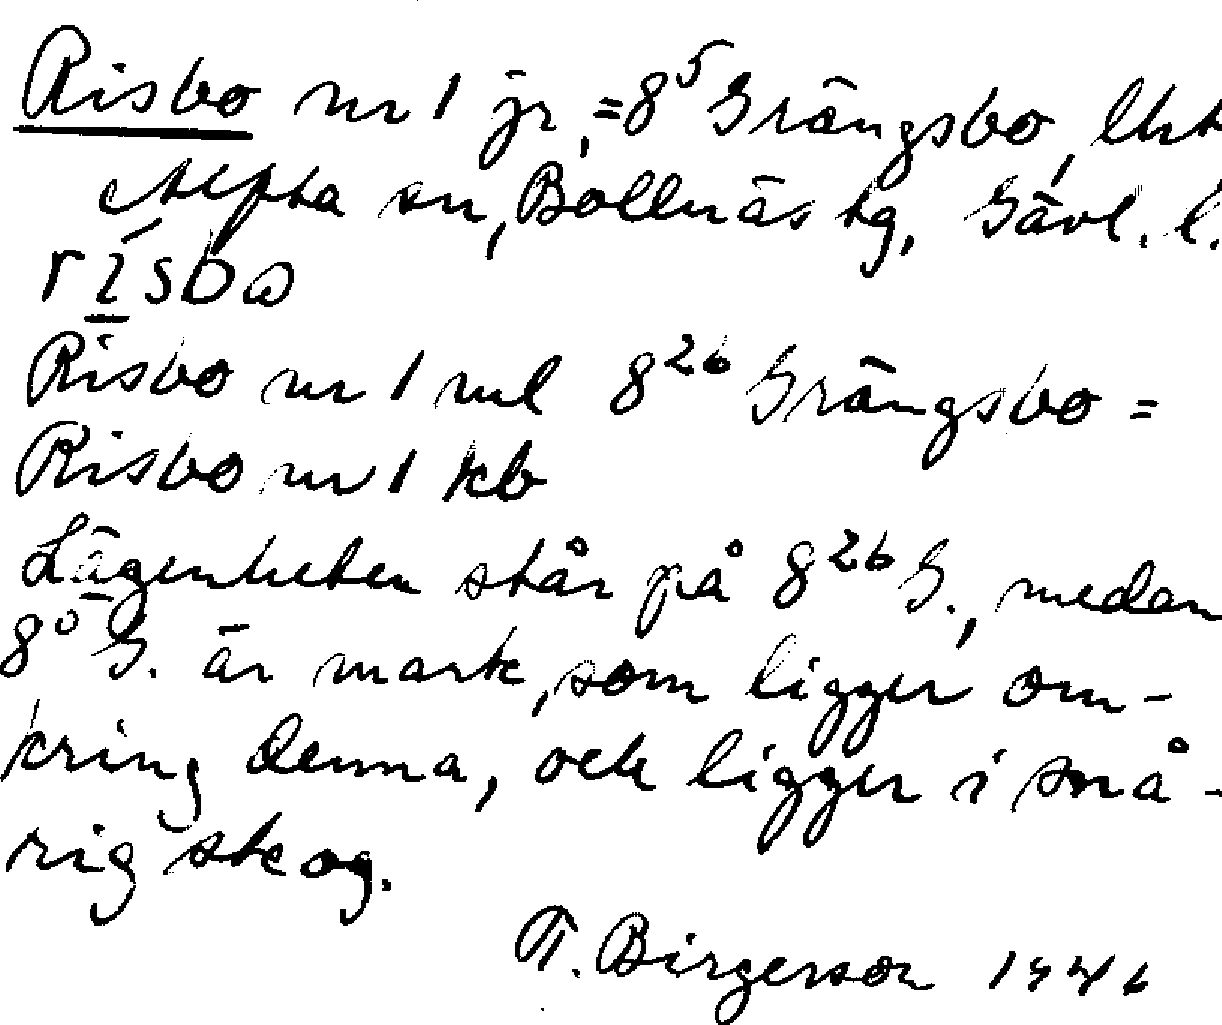 Risbo nr 1 jr, =8⁵ Grängsbo, lht
Alfta sn, Bollnäs tg, Gävl. l.
Risbo nr 1 ml 8²⁶ Grängsbo =
Risbo nr 1 kb
Lägenheten står på 8²⁶ G., medan
8⁵ G. är mark, som ligger om-
kring denna, och ligger i små-
rig skog.
T. Birgerson 1946